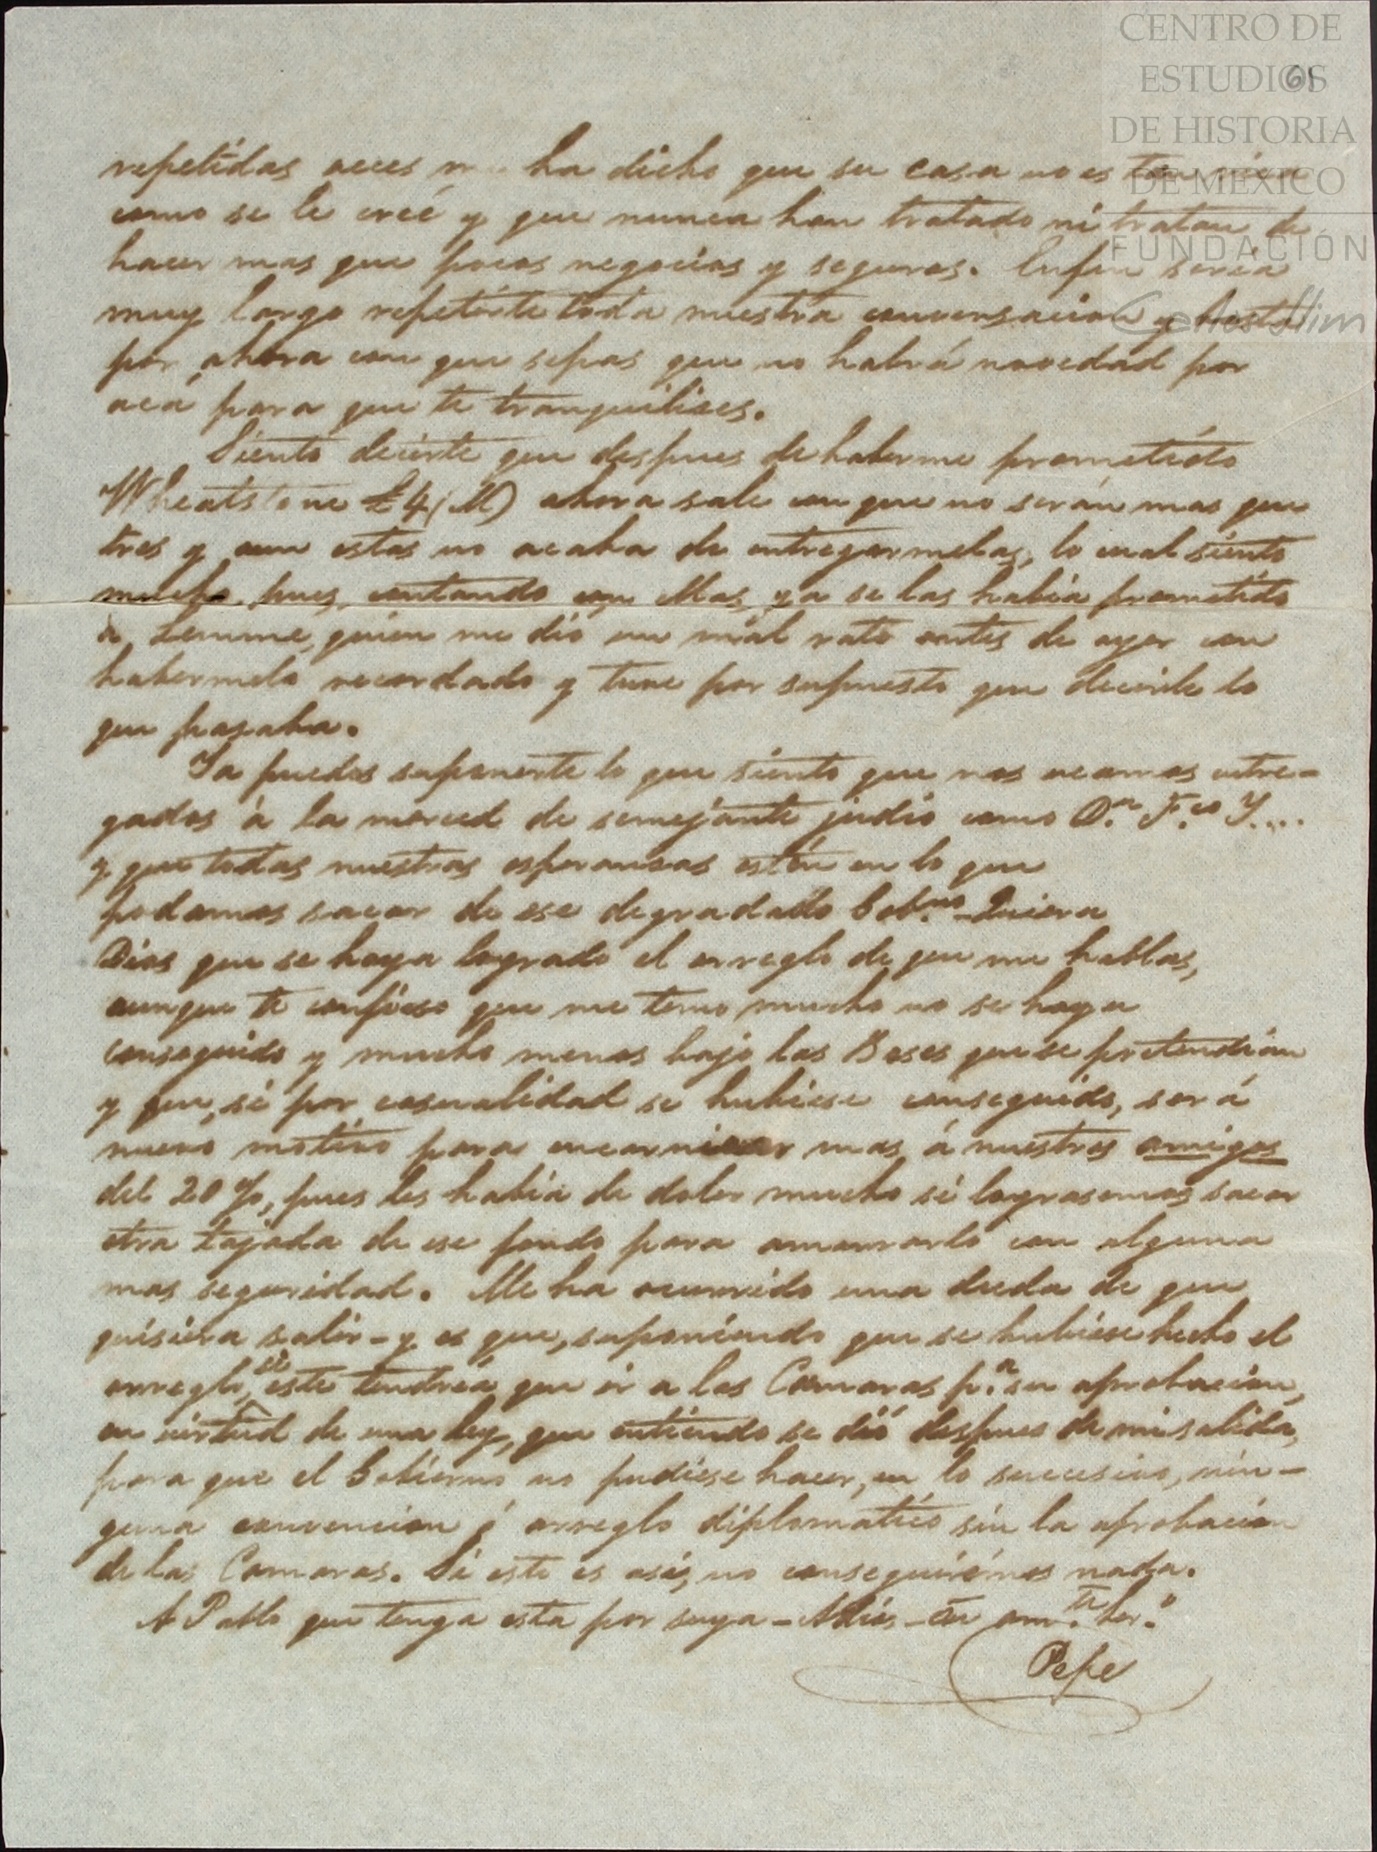 CENTRO DE
ESTUDIOS
DE HISTORIA
DE MÉXICO
FUNDACIÓN
Carlos Slim
61
repetidas veces m ha dicho que su casa no es tan rica
como se le creé y que nunca han tratado ni tratan de
hacer mas que pocos negocios y seguros. Enfin seria
muy largo repetirte toda nuestra conversacion y basta
por ahora con que sepas que no habrá novedad por
acá para que te tranquilises.
Siento decirte que despues de haberme prometido
Wheatstone £4 (M) ahora sale con que no serán mas que
tres y aun estas no acaba de entregarmelas, lo cual siento
mucho pues, contando con Mas, ya se las habia prometido
á Lemme, quien me dió un mal rato antes de ayer con
habermelo recordado y tuve por supuesto que decirle lo
que pasaba.
Ya puedes suponerte lo que siento que nos veamos entre-
gados á la merced de semejante judio como Dn. Fco. Y....
y que todas nuestras esperanzas estén en lo que
podamos sacar de ese degradado Gobno. - Quiera
Dios que se haya logrado el arreglo de que me hablas,
aunque te confieso que me temo mucho no se haya
conseguido y mucho menos bajo las Bases que se pretendian
y que, si por casualidad se hubiese conseguido, será
nuevo motivo para encarnizar mas á nuestros amigos
del 20 %, pues les habia de doler mucho si lograsemos sacar
otra tajada de ese fondo para amarrarlo con alguna
mas seguridad. Me ha ocurrido una duda de que
quisiera salir - y es que, suponiendo que se hubiese hecho el
arreglo, si este tendrá que ir a las Camaras pa. su aprobacion,
en virtud de una ley, que entiendo se dió despues de mi salida,
para que el Gobierno no pudiese hacer, en lo sucesivo, nin-
guna convencion ó arreglo diplomatico sin la aprobacion
de las Camaras. Si esto es asi, no conseguirémos nada.
A Pablo que tenga esta por suya - Adios - tu amte. hero.
Pepe